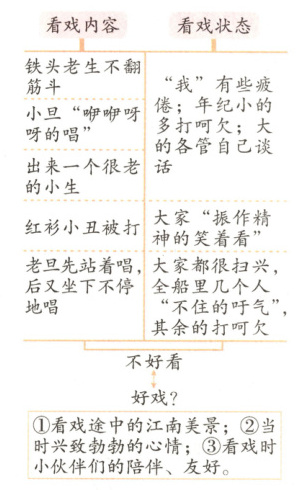 看戏内容
看戏状态
铁头老生不翻
筋斗
小旦“咿咿呀
呀的唱”
出来一个很老
的小生
“我”有些疲
倦；年纪小的
多打呵欠；大
的各管自己谈
话
红衫小丑被打
大家“振作精
神的笑着看”
老旦先站着唱，
后又坐下不停
地唱
大家都很扫兴，
全船里几个人
“不住的吁气”，
其余的打呵欠
不好看
好戏？
①看戏途中的江南美景；②当
时兴致勃勃的心情；③看戏时
小伙伴们的陪伴、友好。